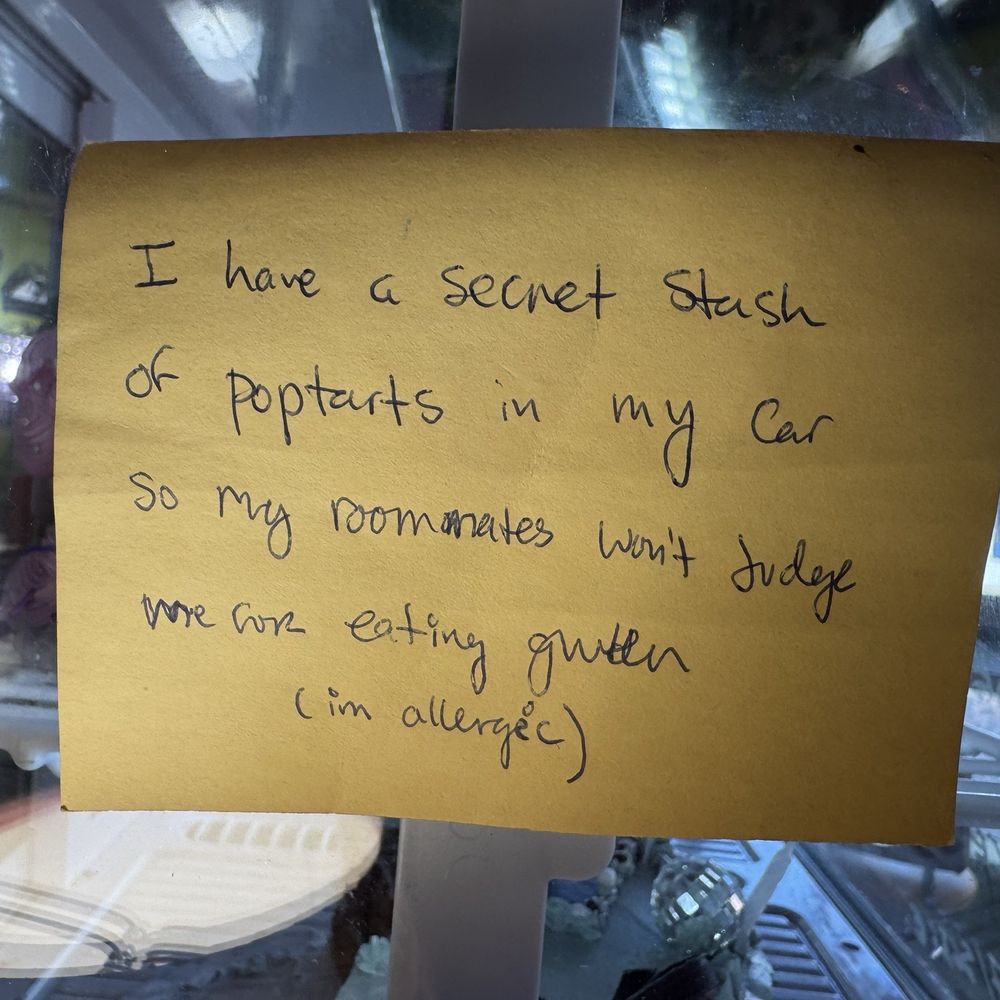 I have a secret stash
of poptarts in my car
so my roommates won't judge
me for eating gluten
(im allergic)